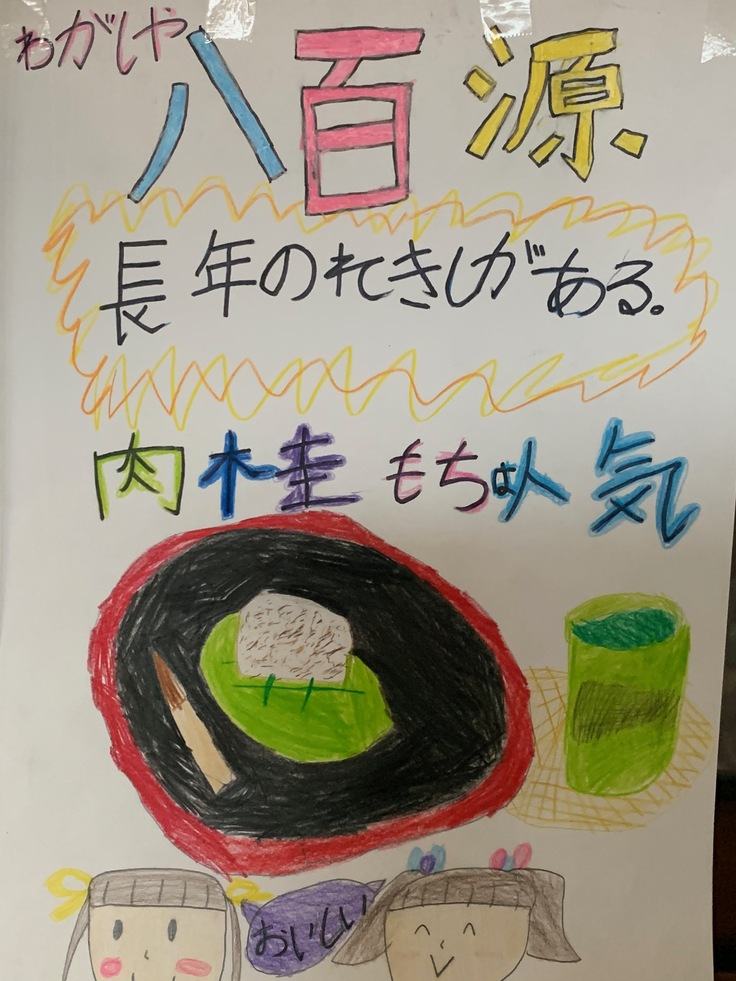 わがしや
八百源
長年のれきしがある。
肉桂もちは人気
おいしい